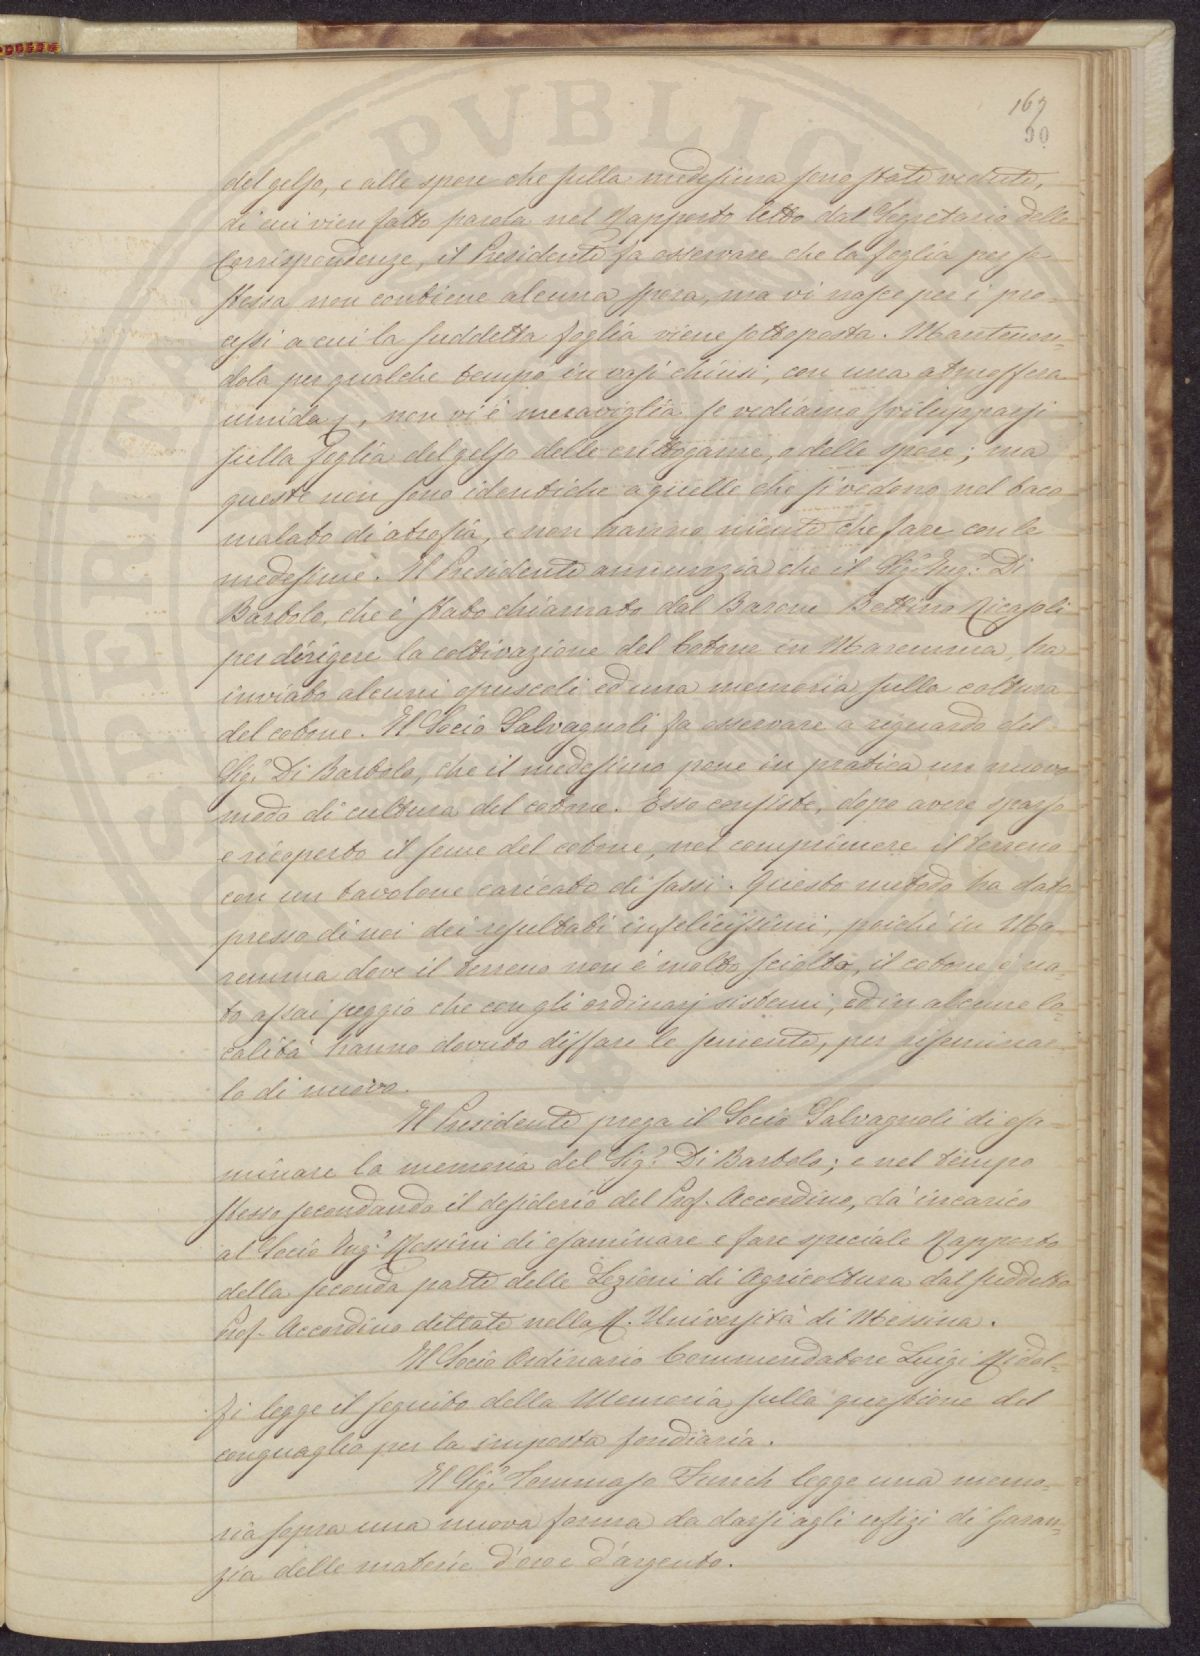 167
90
del gelso, e alle spore che sulla medesima sono state vedute,
di cui vien fatto parola nel Rapporto letto dal Segretario delle
Corrispondenze, il Presidente fa osservare che la foglia per se
stessa non contiene alcuna spora, ma vi nasce per i pro-
cessi a cui la suddetta foglia viene sottoposta. Mantenen-
dola per qualche tempo in vasi chiusi, con una atmosfera
umida, non vi è meraviglia se vediamo svilupparsi
sulla foglia del gelso delle crittogame, o delle spore; ma
queste non sono identiche a quelle che si vedono nel baco
malato di atrofia, e non hanno niente che fare con le
medesime. Il Presidente annunzia che il Sigr. Ingr. Di
Bartolo, che è stato chiamato dal Barone Bettino Ricasoli
per dirigere la coltivazione del Cotone in Maremma, ha
inviato alcuni opuscoli ed una memoria sulla coltura
del cotone. Il Socio Salvagnoli fa osservare a riguardo del
Sigr. Di Bartolo, che il medesimo pone in pratica un nuovo
modo di cultura del cotone. Esso consiste, dopo avere sparso
e ricoperto il seme del cotone, nel comprimere il terreno
con un tavolone caricato di sassi. Questo metodo ha dato
presso di noi dei resultati infelicissimi, poichè in Ma-
remma dove il terreno non è molto sciolto, il cotone è na-
to assai peggio che con gli ordinarj sistemi, ed in alcune lo-
calità hanno dovuto disfare le semente, per riseminar-
lo di nuovo.
Il Presidente prega il Socio Salvagnoli di esa-
minare la memoria del Sigr. Di Bartolo; e nel tempo
stesso secondando il desiderio del Prof. Accordino, dà incarico
al Socio Ingr. Rossini di esaminare e fare speciale Rapporto
della seconda parte delle Lezioni di Agricoltura dal suddetto
Prof. Accordino dettate nella R. Università di Messina.
Il Socio Ordinario Commendatore Luigi Ridol-
fi legge il seguito della Memoria sulla questione del
conguaglio per la imposta fondiaria.
Il Sigr. Tommaso legge una memo-
ria sopra una nuova forma da darsi agli ufizi di Garan-
zia delle materie d'oro e d'argento.